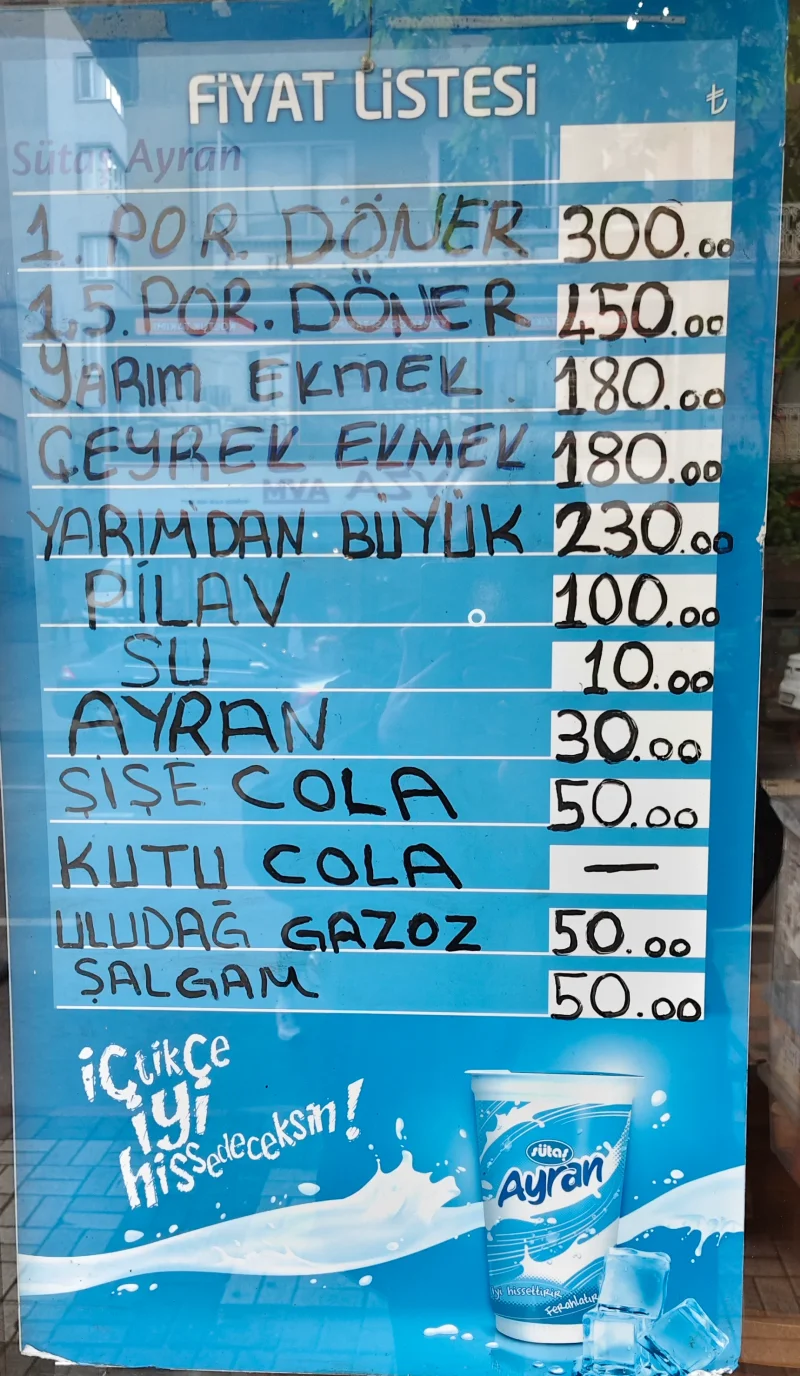 FİYAT LİSTESİ
₺
Sütaş Ayran
1. POR. DÖNER 300.00
1,5. POR. DÖNER 450.00
YARIM EKMEK. 180.00
ÇEYREK EKMEK 180.00
YARIM'DAN BÜYÜK 230.00
PİLAV 100.00
SU 10.00
AYRAN 30.00
ŞİŞE COLA 50.00
KUTU COLA —
ULUDAĞ GAZOZ 50.00
ŞALGAM 50.00
içtikçe
iyi
hissedeceksin!
sütaş
Ayran
iyi hissettirir
Ferahlatır